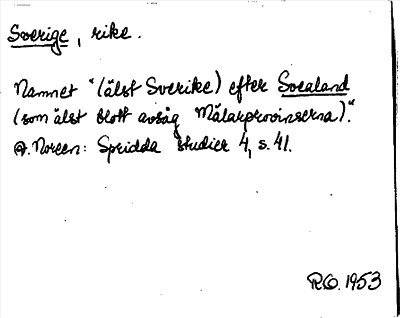 Sverige, rike.
Namnet "(älst Sverike) efter Svealand
(som älst blott avsåg Mälarprovinserna)."
A. Noreen: Spridda studier 4, s. 41.
R.O. 1953